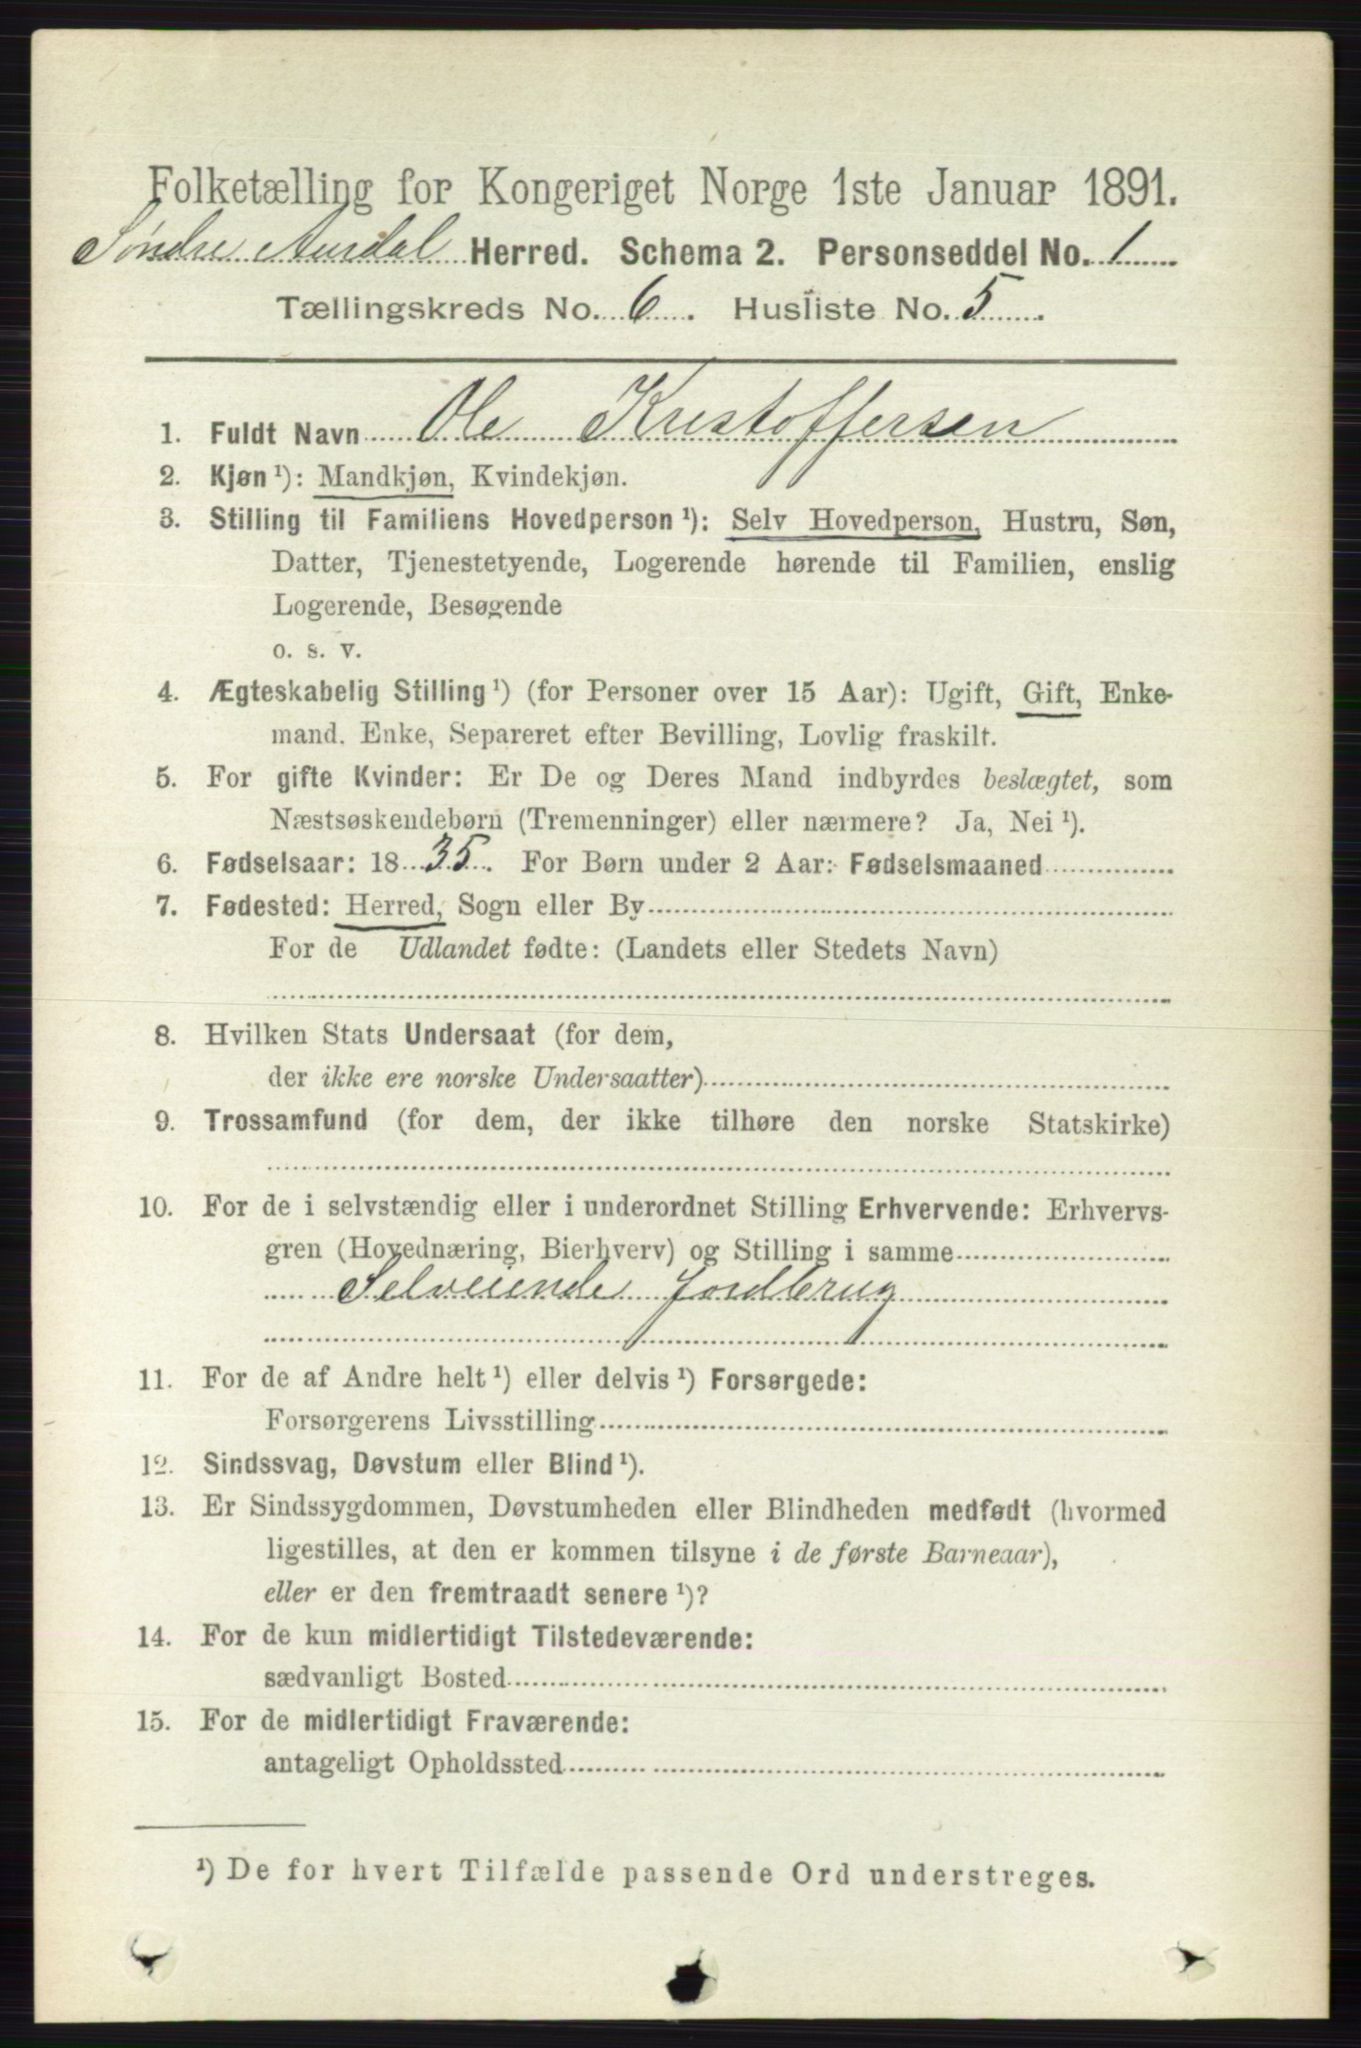 Folketælling for Kongeriget Norge 1ste Januar 1891.
Søndre Aurdal Herred. Schema 2. Personseddel No. 1
Tællingskreds No. 6. Husliste No. 5.
1. Fuldt Navn Ole Kristoffersen
2. Kjøn ¹): Mandkjøn, Kvindekjøn.
3. Stilling til Familiens Hovedperson ¹): Selv Hovedperson, Hustru, Søn,
Datter, Tjenestetyende, Logerende hørende til Familien, enslig
Logerende, Besøgende
o. s. v.
4. Ægteskabelig Stilling ¹) (for Personer over 15 Aar): Ugift, Gift, Enke-
mand. Enke, Separeret efter Bevilling, Lovlig fraskilt.
5. For gifte Kvinder: Er De og Deres Mand indbyrdes beslægtet, som
Næstsøskendebørn (Tremenninger) eller nærmere? Ja, Nei ¹).
6. Fødselsaar: 1835. For Børn under 2 Aar: Fødselsmaaned
7. Fødested: Herred, Sogn eller By
For de Udlandet fødte: (Landets eller Stedets Navn)
8. Hvilken Stats Undersaat (for dem,
der ikke ere norske Undersaatter)
9. Trossamfund (for dem, der ikke tilhøre den norske Statskirke)
10. For de i selvstændig eller i underordnet Stilling Erhvervende: Erhvervs-
gren (Hovednæring, Bierhverv) og Stilling i samme
Selveiende Jordbrug
11. For de af Andre helt ¹) eller delvis ¹) Forsørgede:
Forsørgerens Livsstilling
12. Sindssvag, Døvstum eller Blind ¹).
13. Er Sindssygdommen, Døvstumheden eller Blindheden medfødt (hvormed
ligestilles, at den er kommen tilsyne i de første Barneaar),
eller er den fremtraadt senere ¹)?
14. For de kun midlertidigt Tilstedeværende:
sædvanligt Bosted
15. For de midlertidigt Fraværende:
antageligt Opholdssted
¹) De for hvert Tilfælde passende Ord understreges.